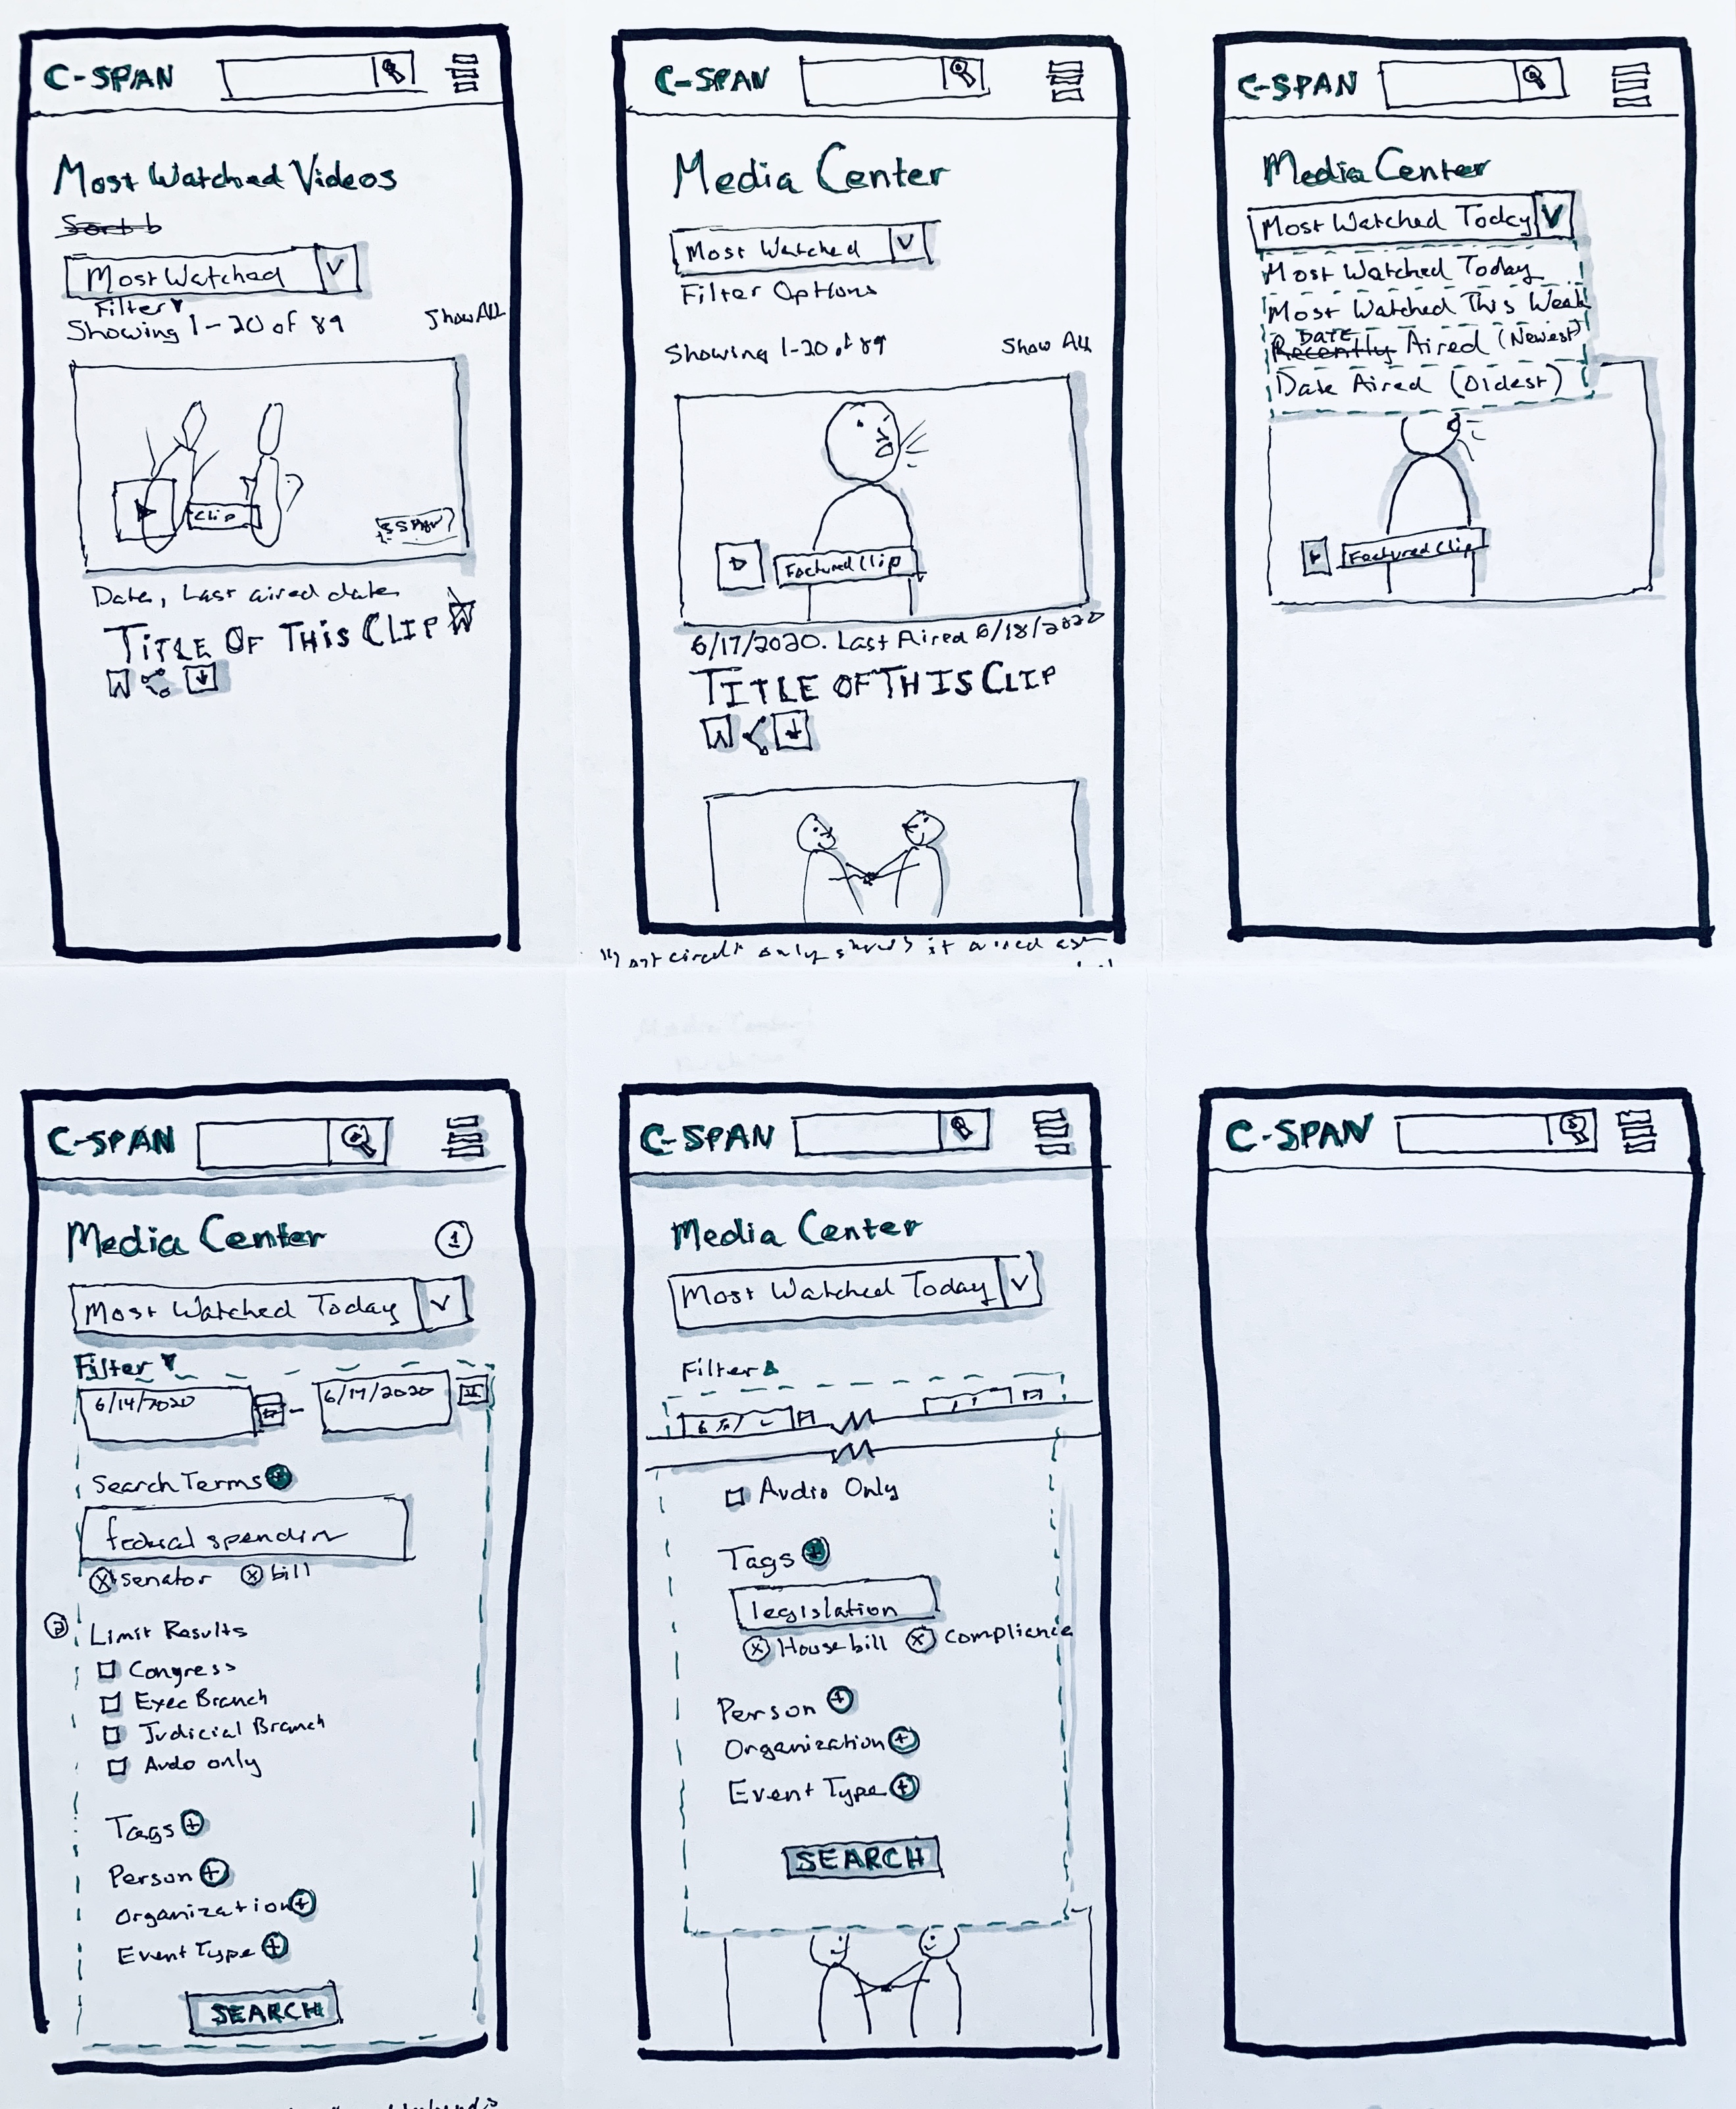 C-SPAN
Most Watched Videos
Sort b
Most Watched
Filter
Showing 1-20 of 89
Show All
Clip
Date, Last aired date
TITLE OF THIS CLIP
C-SPAN
Media Center
Most Watched
Filter Options
Showing 1-20 of 89
Show All
Featured Clip
6/17/2020. Last Aired 6/18/2020
TITLE OF THIS CLIP
only
it aired
C-SPAN
Media Center
Most Watched Today
Most Watched Today
Most Watched This Week
DATE
Recently Aired (Newest)
Date Aired (Oldest)
Featured Clip
C-SPAN
Media Center
1
Most Watched Today
Filter
6/14/2020 - 6/17/2020
Search Terms +
federal spendin
x senator x bill
2 Limit Results
Congress
Exec Branch
Judicial Branch
Audo only
Tags +
Person +
Organization +
Event Type +
SEARCH
C-SPAN
Media Center
Most Watched Today
Filter
Audio Only
Tags +
legislation
x House bill x compliance
Person +
Organization +
Event Type +
SEARCH
C-SPAN